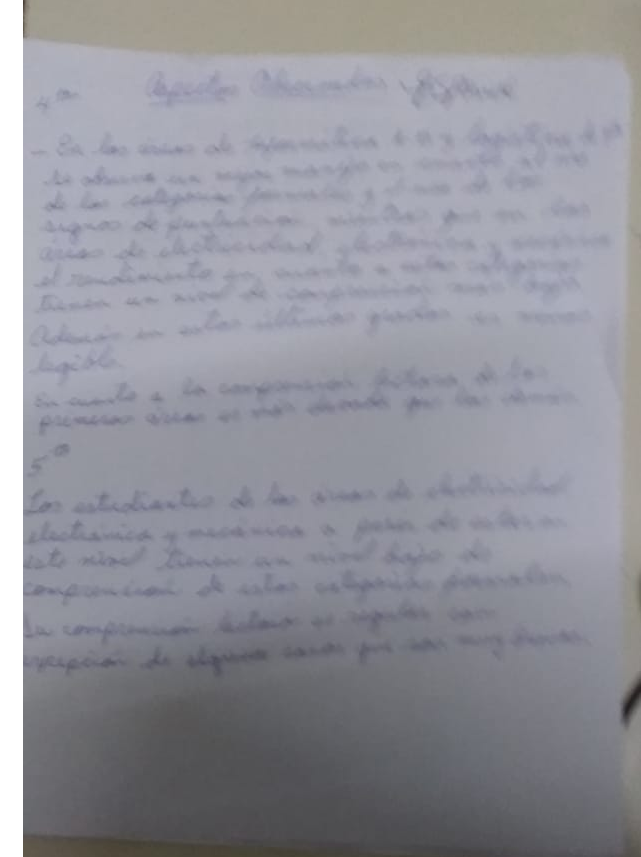 4to Aspectos Observados
- En las áreas de Informática 4 A y 4 B
se observa un mejor manejo en cuanto al uso
de las categorías formales y el uso de los
signos de puntuación mientras que en las
áreas de electricidad electrónica y mecánica
el rendimiento en cuanto a estas categorías
tienen un nivel de comprensión más bajo
Además en estos últimos grados es menos
legible.
En cuanto a la comprensión lectora de las
primeras áreas es más elevada que las demás
5to
Los estudiantes de las áreas de electricidad
electrónica y mecánica a pesar de estar en
este nivel tienen un nivel bajo de
comprensión de estas categorías formales
La comprensión lectora es regular con
excepción de algunos casos que son muy buenos